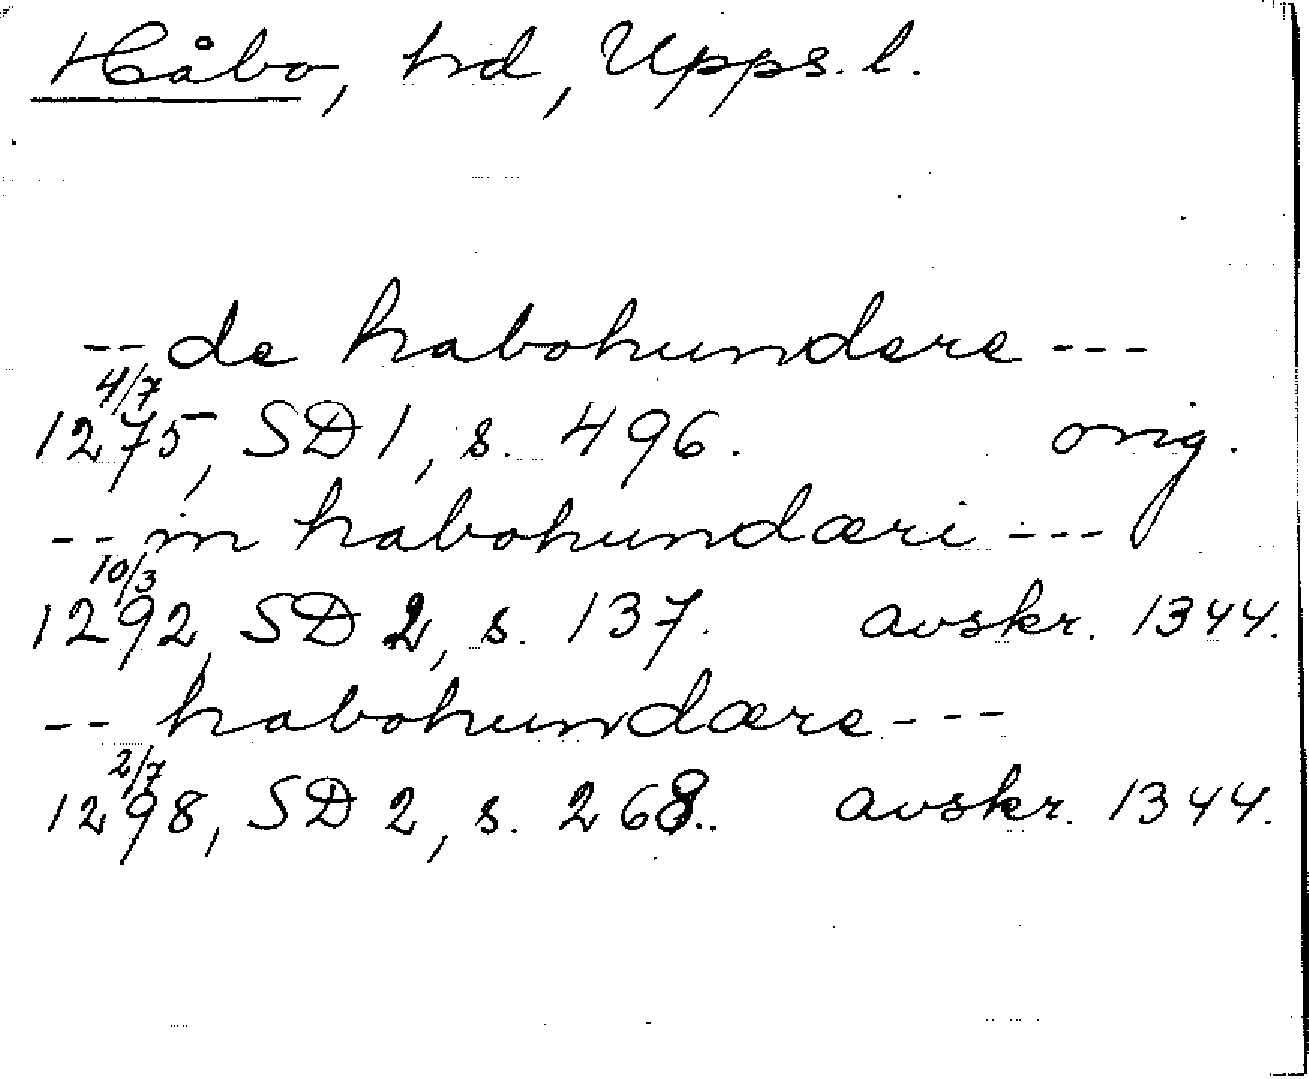 Håbo, hd, Upps. l.
-- de habohundere ---
4/7
1275, SD 1, s. 496. orig.
-- in habohundæri ---
10/3
1292, SD 2, s. 137. avskr. 1344.
-- habohundære ---
2/7
1298, SD 2, s. 268. avskr. 1344.